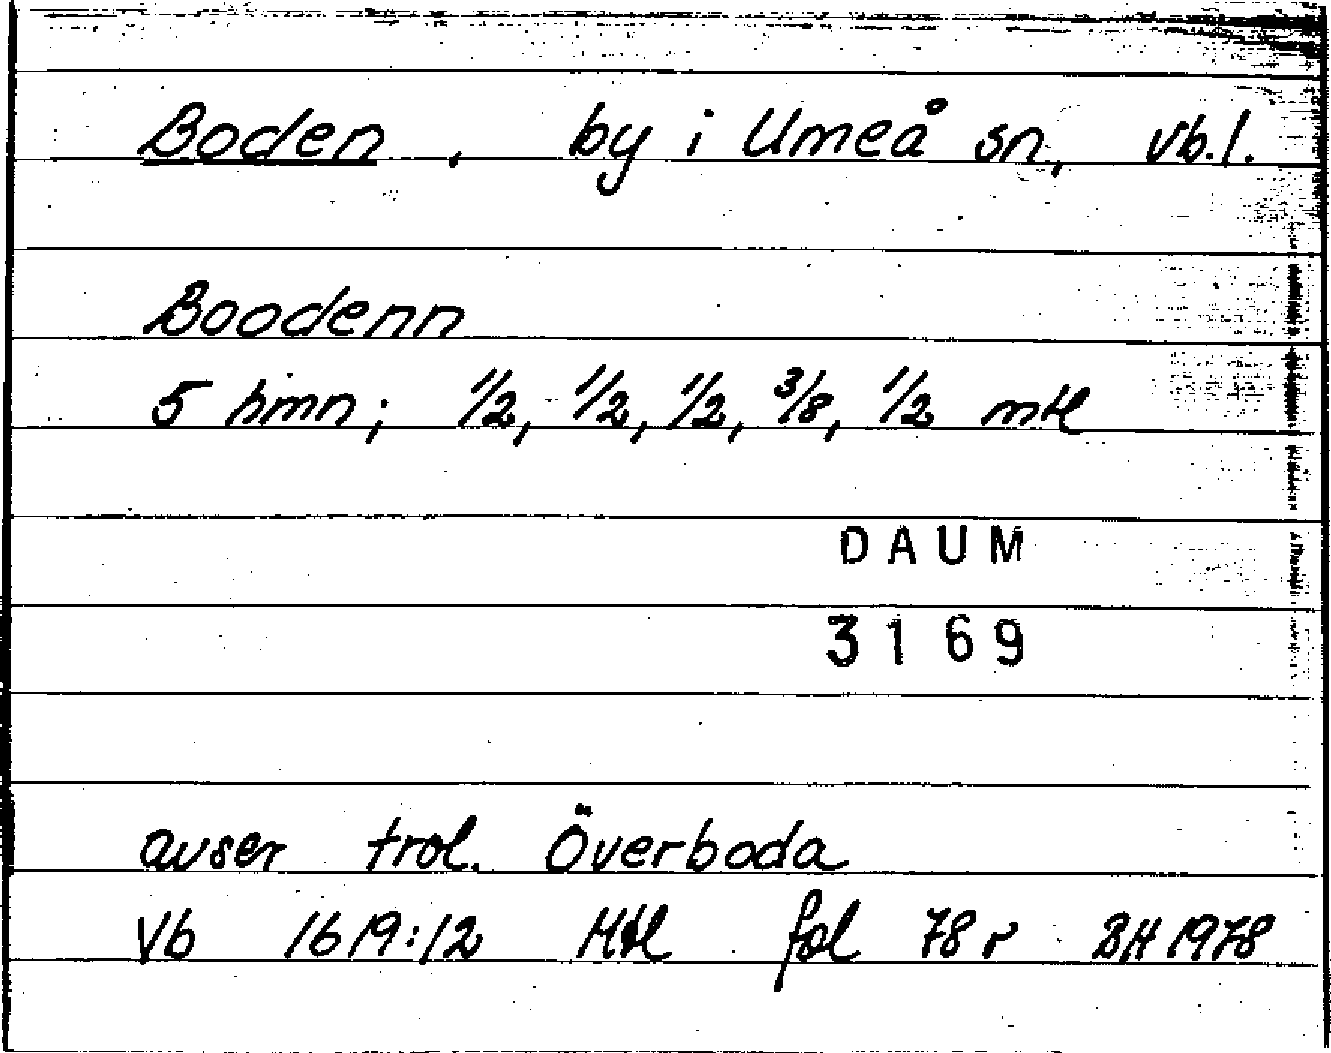 Boden, by i Umeå sn, Vb. l.
Boodenn
5 hmn; 1/2, 1/2, 1/2, 3/8, 1/2 mtl
DAUM
3169
avser trol. Överboda
Vb 1619:12 Mtl fol 78 r BH 1978